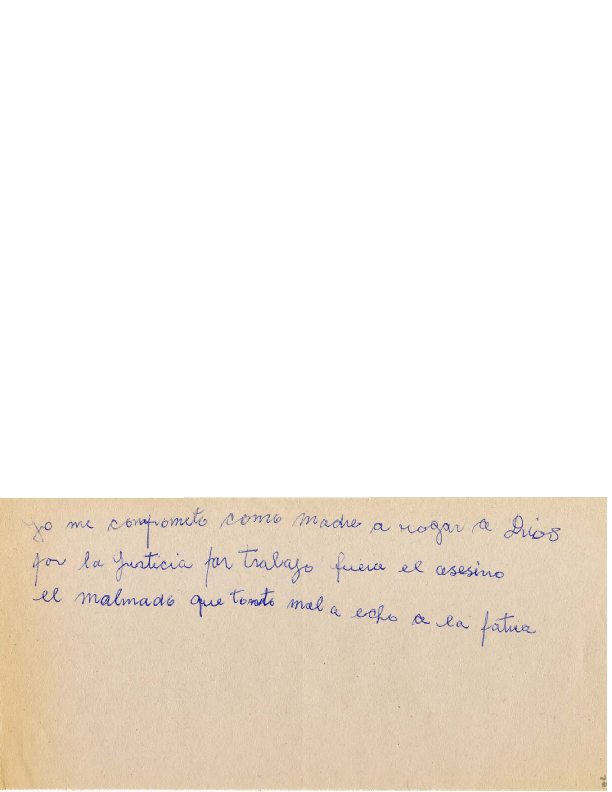 yo me comprometo como madre a rogar a Dios
por la Justicia por trabajo fuera el asesino
el malmado que tonto mal a echo a la fatua